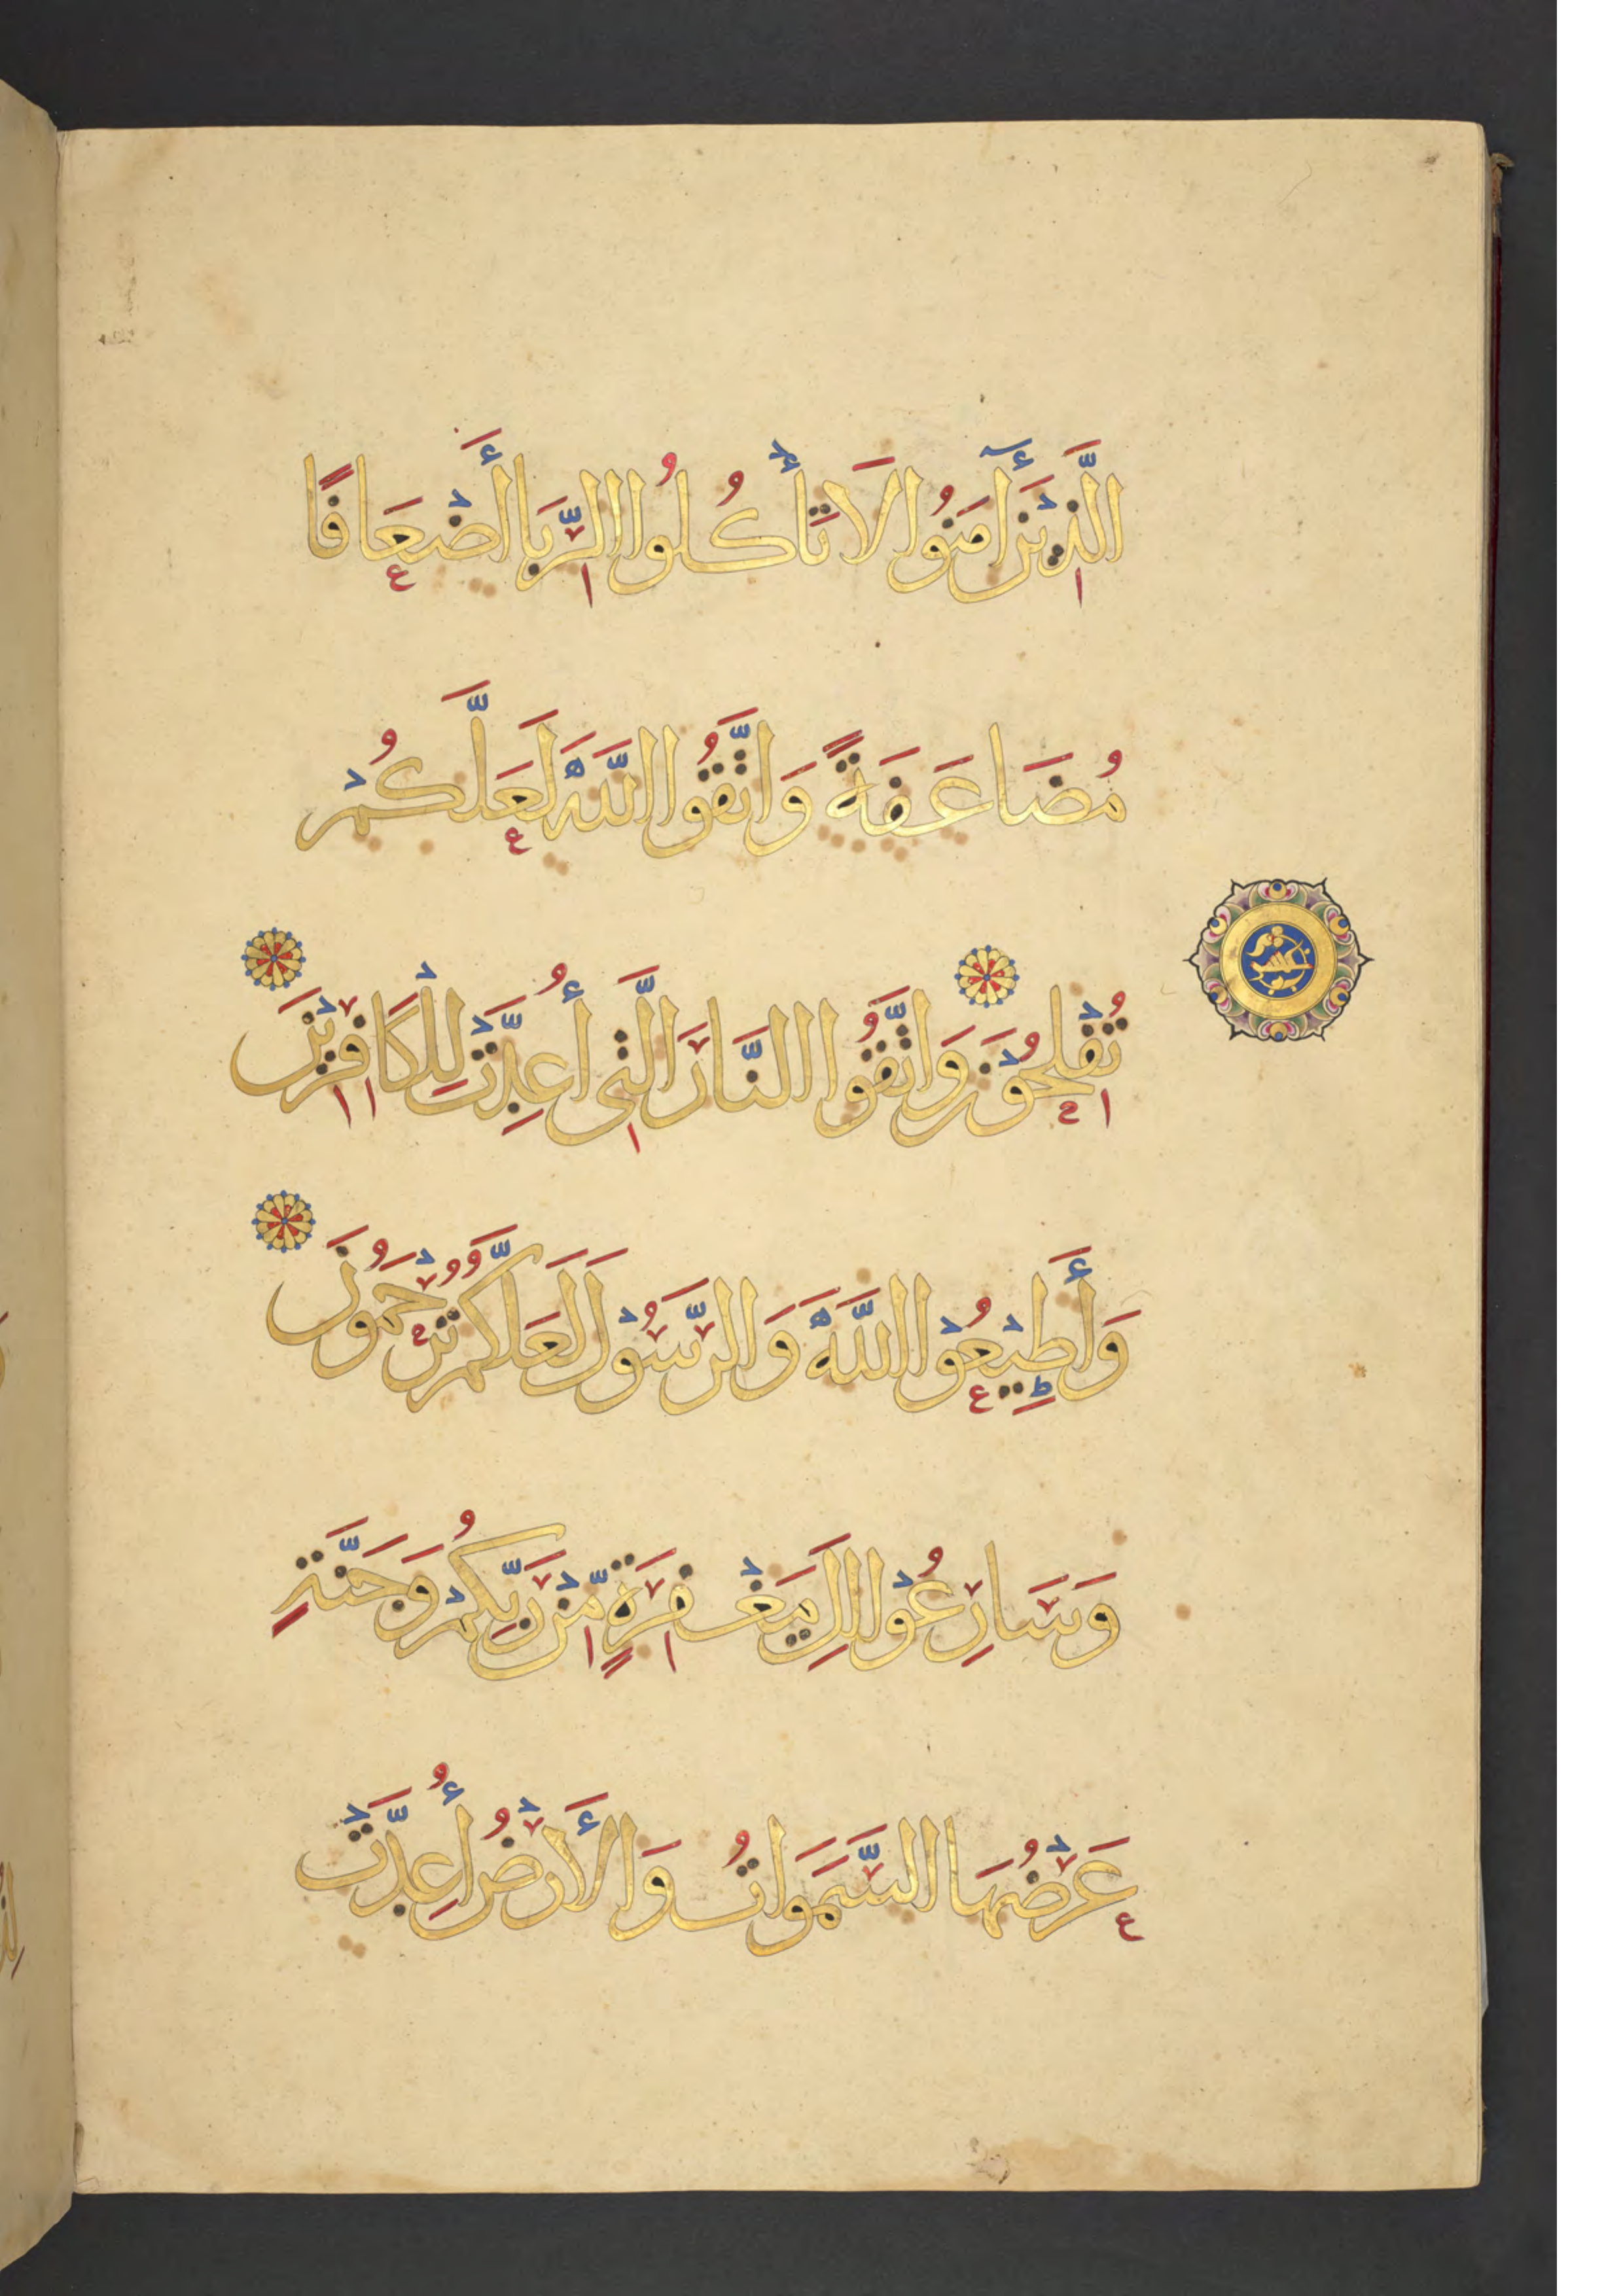 الَّذِيْنَ أٓمَنُوا لَا تَأْكُلُوا الرِّبَا أَضْعَافًا
مُضَاعَفَةً وَاتَّقُوا اللَّهَ لَعَلَّكُمْ
تُفْلِحُوْنَ وَاتَّقُوا النَّارَ الَّتِي أُعِدَّتْ لِلْكَافِرِيْنَ
وَأَطِيْعُوْا اللَّهَ وَالرَّسُوْلَ لَعَلَّكُمْ تُرْحَمُوْنَ
وَسَارِعُوْا إِلَى مَغْفِرَةٍ مِّنْ رَبِّكُمْ وَجَنَّةٍ
عَرْضُهَا السَّمَوَاتُ وَالْأَرْضُ أُعِدَّتْ